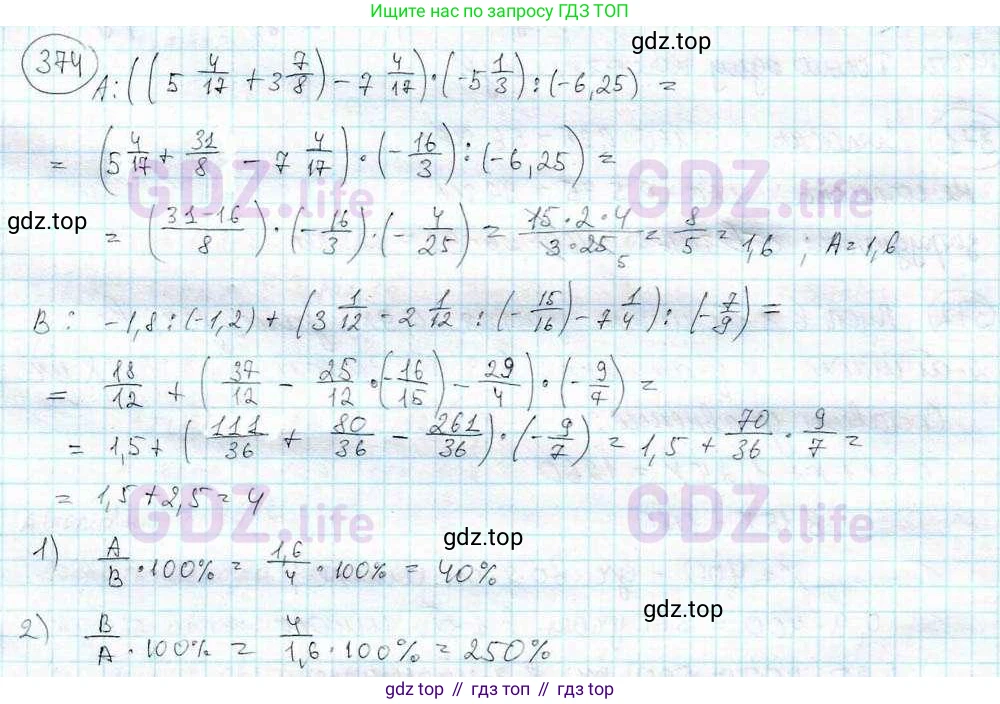 Ищите нас по запросу ГДЗ ТОП
gdz.top
374 A: ((5 4/17 + 3 7/8) - 7 4/17) · (-5 1/3) : (-6,25) =
= (5 4/17 + 31/8 - 7 4/17) · (-16/3) : (-6,25) =
GDZ.life GDZ.life
gdz.top
= ((31-16)/8) · (-16/3) · (-4/25) = (15·2·4)/(3·25 5) = 8/5 = 1,6 ; A=1,6
B: -1,8 : (-1,2) + (3 1/12 - 2 1/12 : (-15/16) - 7 1/4) : (-7/9) =
= 18/12 + (37/12 - 25/12 · (-16/15) - 29/4) · (-9/7) =
= 1,5 + (111/36 + 80/36 - 261/36) · (-9/7) = 1,5 + 70/36 · 9/7 =
= 1,5 + 2,5 = 4
GDZ.life GDZ.life
gdz.top
1) A/B · 100% = 1,6/4 · 100% = 40%
gdz.top
2) B/A · 100% = 4/1,6 · 100% = 250%
gdz.top // гдз топ // gdz.top